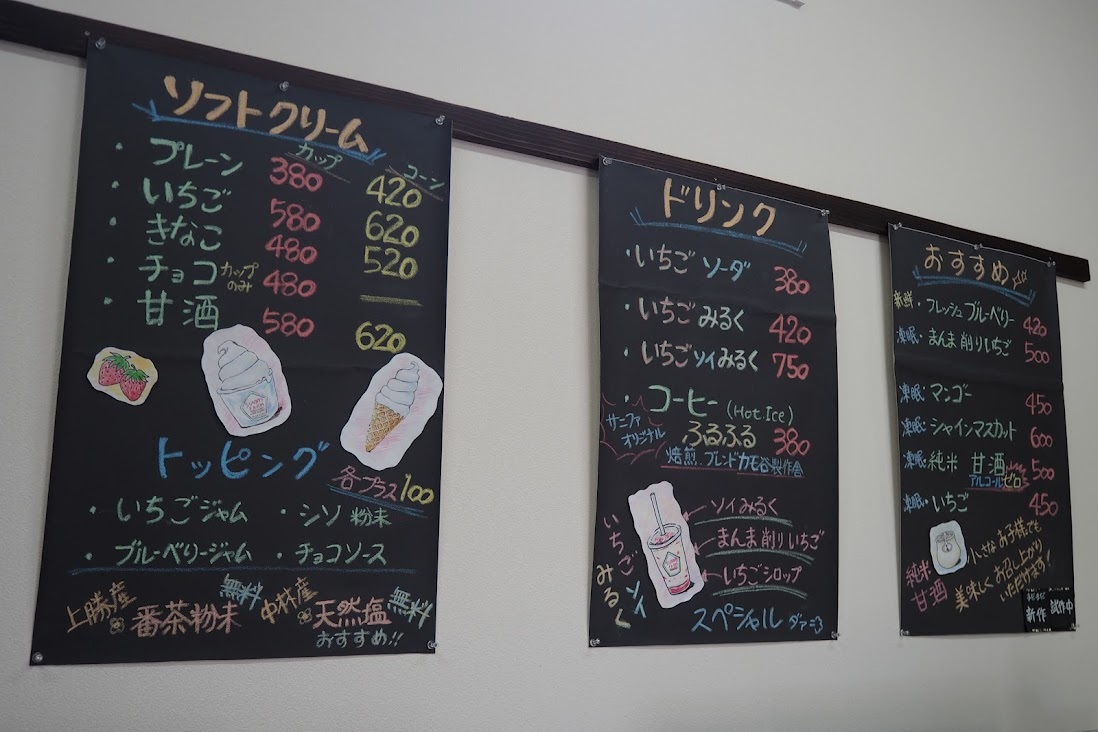 ソフトクリーム
カップ コーン
・プレーン 380 420
・いちご 580 620
・きなこ 480 520
・チョコ カップのみ 480 ―
・甘酒 580 620
トッピング
各プラス100
・いちごジャム ・シソ粉末
・ブルーベリージャム ・チョコソース
上勝産 番茶粉末 無料 中林産 天然塩 無料
おすすめ!!
ドリンク
・いちごソーダ 380
・いちごみるく 420
・いちごソイみるく 750
・コーヒー (Hot.Ice)
サニファ
オリジナル
ふるふる 380
焙煎.ブレンドカモ谷製作舎
いちごソイみるく
ソイみるく
まんま削りいちご
いちごシロップ
スペシャル ダァ=3
おすすめ
新鮮・フレッシュブルーベリー 420
凍眠・まんま削りいちご 500
凍眠・マンゴー 450
凍眠・シャインマスカット 600
凍眠・純米 甘酒 500
アルコールゼロ
凍眠・いちご 450
純米
甘酒
小さなお子様でも
美味しくお召し上がり
いただけます!
新作 試作中